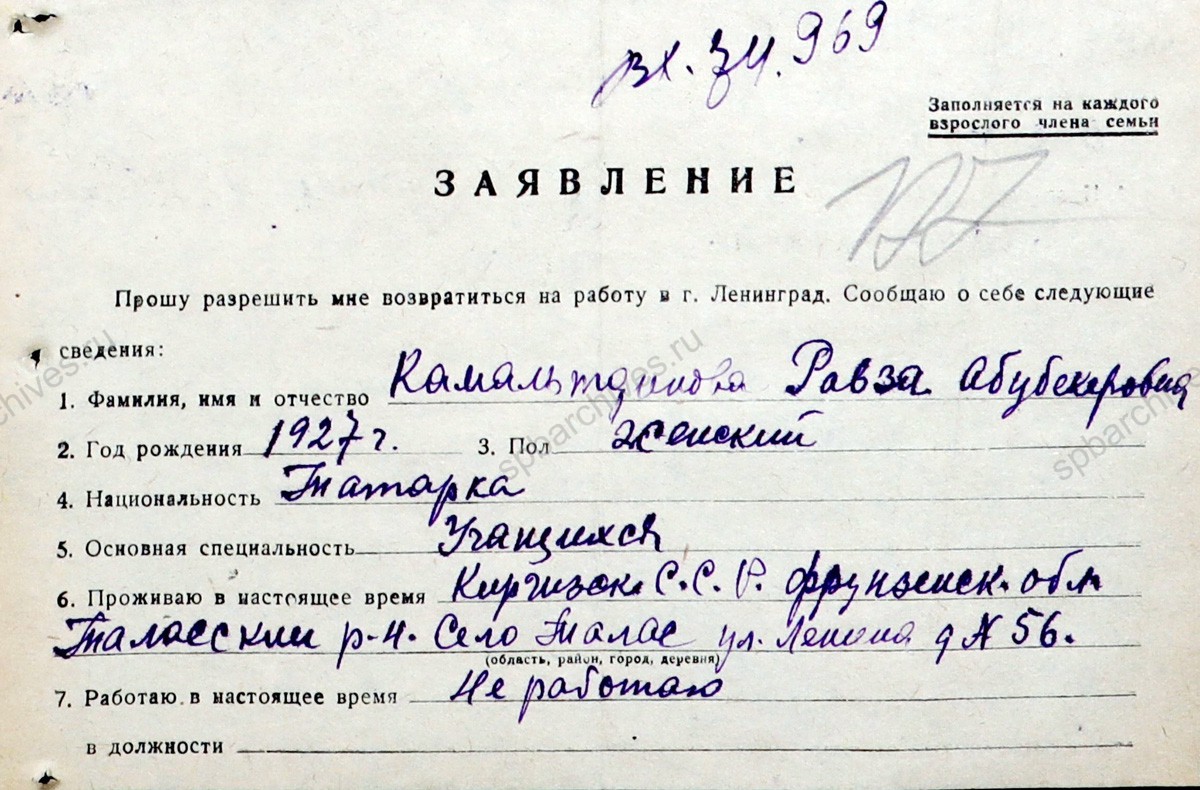 вх. 969
Заполняется на каждого
взрослого члена семьи
ЗАЯВЛЕНИЕ
Прошу разрешить мне возвратиться на работу в г. Ленинград. Сообщаю о себе следующие
сведения:
1. Фамилия, имя и отчество Камальтдинова Равза Абубекеровна
2. Год рождения 1927 г. 3. Пол женский
4. Национальность Татарка
5. Основная специальность Учащихся
6. Проживаю в настоящее время Киргизск С.С.Р. Фрунзенск. обл
Таласский р-н. Село Талас ул. Ленина д № 56.
(область, район, город, деревня)
7. Работаю в настоящее время Не работаю
в должности
spbarchives.ru